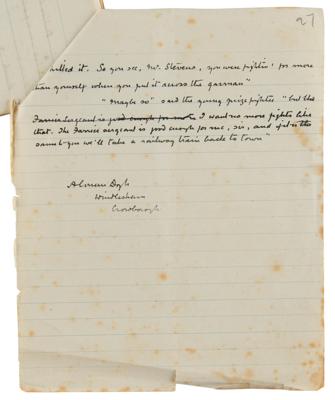 27
called it. So you see, Mr. Stevens, you were fightin' for more
than yourself when you put it across the gasman"
"Maybe so" said the young prize fighter "but the
Farrier Sergeant is good enough for me I want no more fights like
that. The Farrier Sergeant is good enough for me, sir, and if it's the
same to you we'll take a railway train back to town"
A Conan Doyle
Windlesham
Crowborough